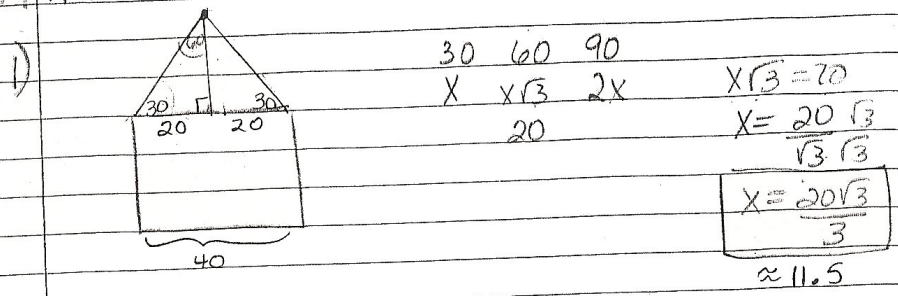 1)
60
30 30
20 20
40
30 60 90
x x√3 2x
20
x√3 = 20
x = 20 √3
√3 √3
x = 20√3
3
≈ 11.5